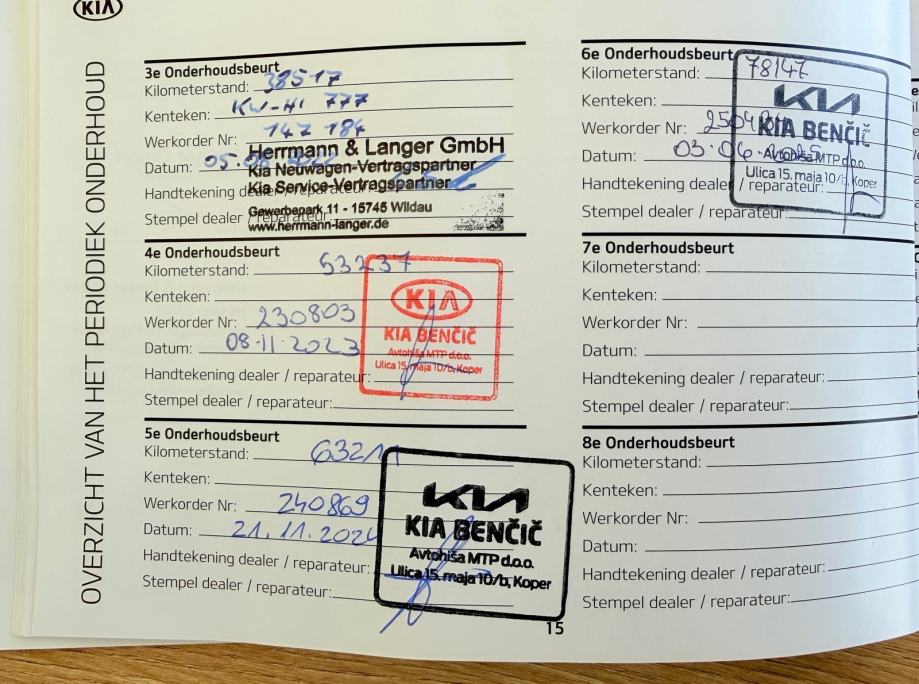 KIA
OVERZICHT VAN HET PERIODIEK ONDERHOUD
3e Onderhoudsbeurt
Kilometerstand: 38517
Kenteken: KW-HI 777
Werkorder Nr: 142 184
Datum: 05.
Handtekening dealer / reparateur:
Stempel dealer / reparateur:
Herrmann & Langer GmbH
Kia Neuwagen-Vertragspartner
Kia Service-Vertragspartner
Gewerbepark 11 - 15745 Wildau
www.herrmann-langer.de
4e Onderhoudsbeurt
Kilometerstand: 53237
Kenteken:
Werkorder Nr: 230803
Datum: 08.11.2023
Handtekening dealer / reparateur:
Stempel dealer / reparateur:
KIA
KIA BENČIČ
Avtohiša MTP d.o.o.
Ulica 15. maja 10/b, Koper
5e Onderhoudsbeurt
Kilometerstand: 63211
Kenteken:
Werkorder Nr: 240869
Datum: 21.11.2024
Handtekening dealer / reparateur:
Stempel dealer / reparateur:
KIA
KIA BENČIČ
Avtohiša MTP d.o.o.
Ulica 15. maja 10/b, Koper
6e Onderhoudsbeurt
Kilometerstand: 78147
Kenteken:
Werkorder Nr:
Datum: 03.06.2025
Handtekening dealer / reparateur:
Stempel dealer / reparateur:
KIA
KIA BENČIČ
Avtohiša MTP d.o.o.
Ulica 15. maja 10/b, Koper
7e Onderhoudsbeurt
Kilometerstand:
Kenteken:
Werkorder Nr:
Datum:
Handtekening dealer / reparateur:
Stempel dealer / reparateur:
8e Onderhoudsbeurt
Kilometerstand:
Kenteken:
Werkorder Nr:
Datum:
Handtekening dealer / reparateur:
Stempel dealer / reparateur:
15